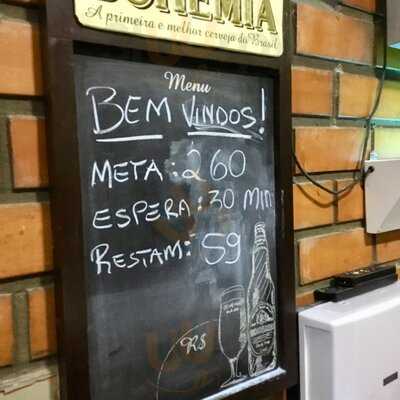 BOHEMIA
A primeira e melhor cerveja do Brasil
Menu
BEM VINDOS!
META: 260
ESPERA: 30 MIN
RESTAM: 59
R$